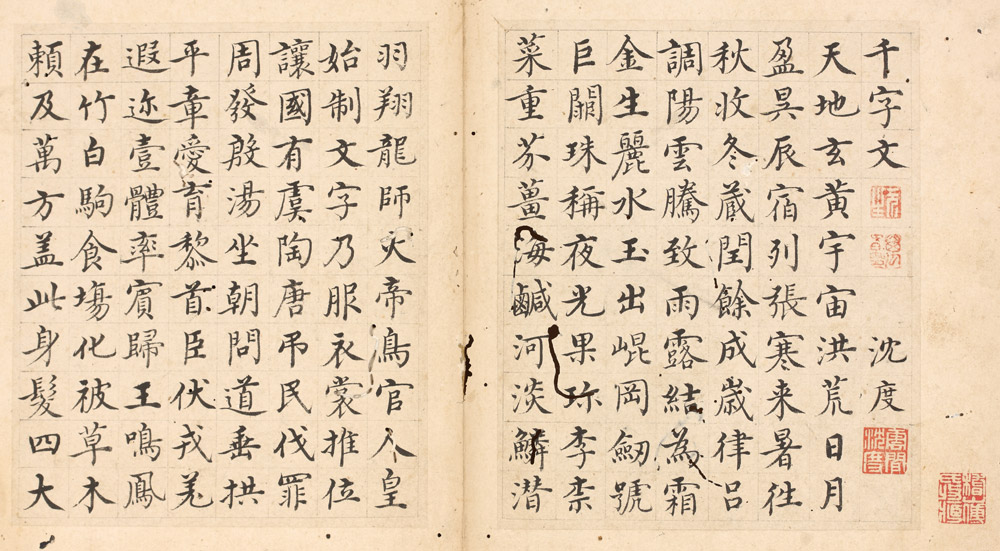 千字文 沈度
天地玄黄宇宙洪荒日月
盈昃辰宿列張寒来暑徃
秋收冬蔵閏餘成歳律吕
調陽雲騰致雨露結為霜
金生麗水玉出崐岡劒號
巨闕珠稱夜光果珎李柰
菜重芥薑海鹹河淡鱗潜
羽翔龍師火帝鳥官人皇
始制文字乃服衣裳推位
讓國有虞陶唐吊民伐罪
周發殷湯坐朝問道垂拱
平章愛育黎首臣伏戎羌
遐迩壹體率賓歸王鳴鳳
在竹白駒食塲化被草木
頼及萬方盖此身髮四大